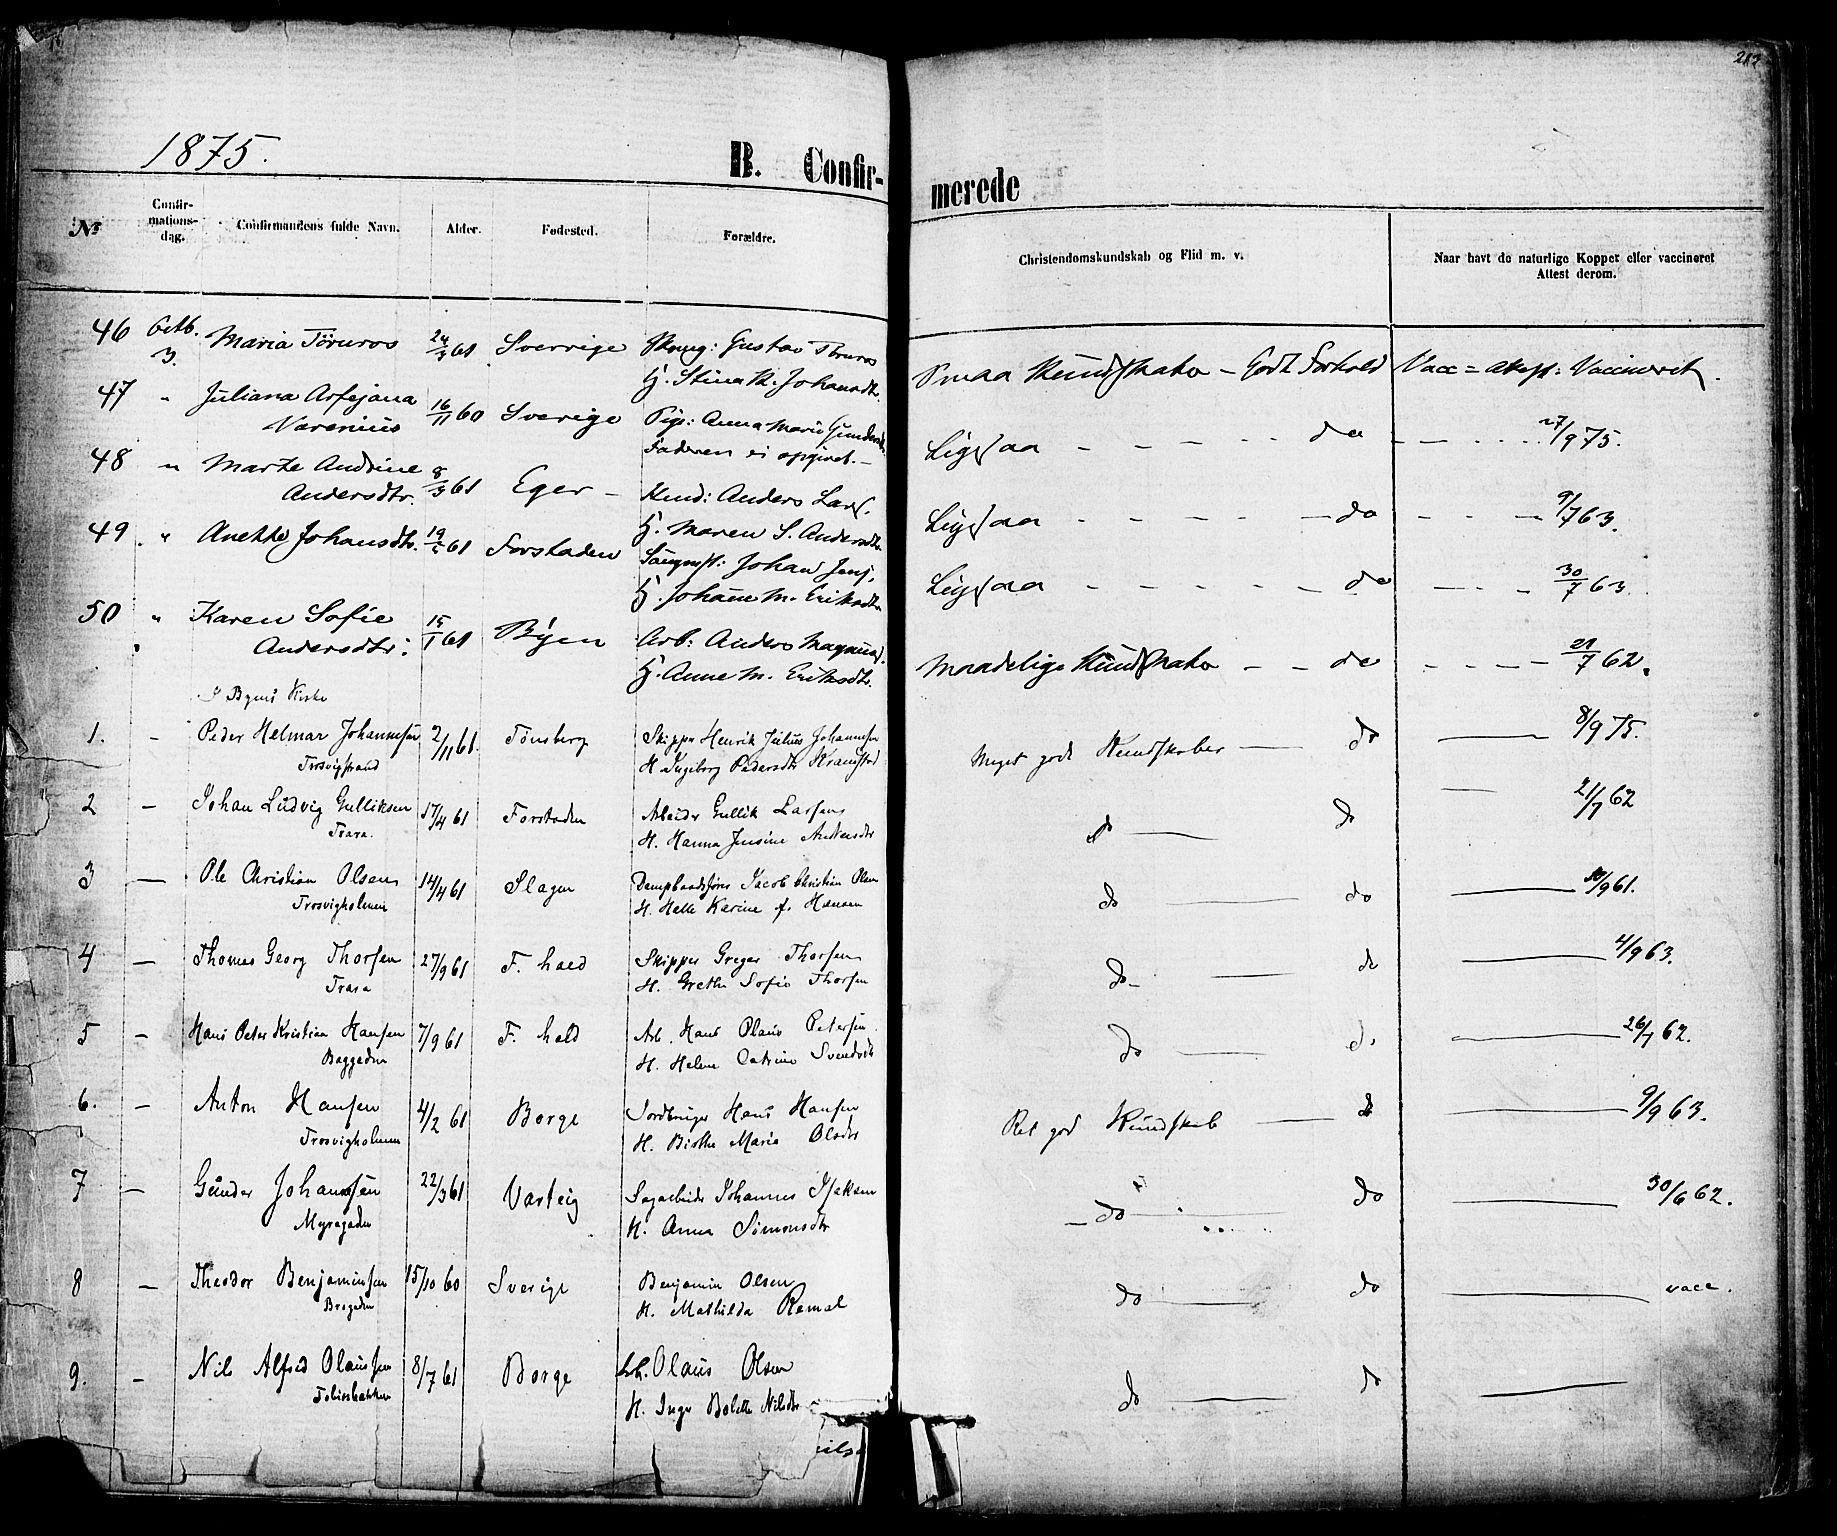 212
1875.
B. Confir-
merede
№
Confir-
mations-
dag.
Confirmandens fulde Navn.
Alder.
Fødested.
Forældre.
Christendomskundskab og Flid m. v.
Naar havt de naturlige Kopper eller vaccineret
Attest derom.
46 Octb. 3. Maria Töruros 24/3 61 Sverrige Gustav
H. Stina K. Johansdtr.
Smaa Kundskaber – Godt Forhold Vacc = Vaccineret.
47 " Juliana Arfejana 16/11 60 Sverige Pige: Anna Marie
Varenius Faderen ei opgivet. –
Ligesaa - - - - do - - - 27/9 75.
48 " Marte Andrine 8/3 61 Eger – Anders Lars.
Andersdtr. H. Maren S. Andersdtr.
Ligesaa - - - - do - - - 9/7 63.
49 " Anette Johansdtr. 61 Forstaden Johan Jens.
H. Johanne M. Eriksdtr.
Ligesaa - - - - do - - - 30/7 63.
50 " Karen Sofie 15/1 61 Byen Arb: Anders Magnus.
Andersdtr. H. Anne M. Eriksdtr.
Maadelige Kundskaber - - do - - - 21/7 62.
I Byens Kirke
1. – Peder Helmar Johannesen 2/11 61. Tønsberg Skipper Henrik Julius Johannesen
Trosvigstrand H. Ingeborg Pedersdtr
Meget gode Kundskaber — do — 8/9 75.
2 – Johan Ludvig Gulliksen 17/4 61 Forstaden Arbeider Gullik Larsen
Trara. H. Hanna Jensine Andersdtr
do — do — 21/7 62
3 — Ole Christian Olsen 14/4 61 Slagen Jacob Christian Olsen
Trosvigholmen H. Helle Karine f. Hansen
do — do — 10/9 61.
4 – Thomas Georg Thorsen 27/9 61 F. hald Skipper Greger Thorsen
Trara H. Grethe Sofie Thorsen
do — do — 4/9 63.
5 – Hans Peter Kristian Hansen 7/9 61 F. hald Arb. Hans Olaus Petersen
Baggaden H. Helene Catrine Svendsdtr
do — do — 26/7 62.
6. – Anton Hansen 4/2 61 Borge Jordbruger Hans Hansen
Trosvigholmen H. Birthe Maria Olsdtr
Ret god Kundskab — do — 9/9 63.
7 – Gunder Johannesen 22/3 61 Varteig Sagarbeider Johannes Isaksen
Myragaden H. Anna Simonsdtr
do — do — 30/6 62.
8 – Theodor Benjaminsen 15/10 60 Sverige Benjamin Olsen
Brogaden H. Mathilda Remal
do — do — vacc.
9. – Nils Alfred Olaussen 8/7 61 Borge Arb. Olaus Olsen
Tobiesbakken H. Inge Bolette Nilsdtr
do — do —